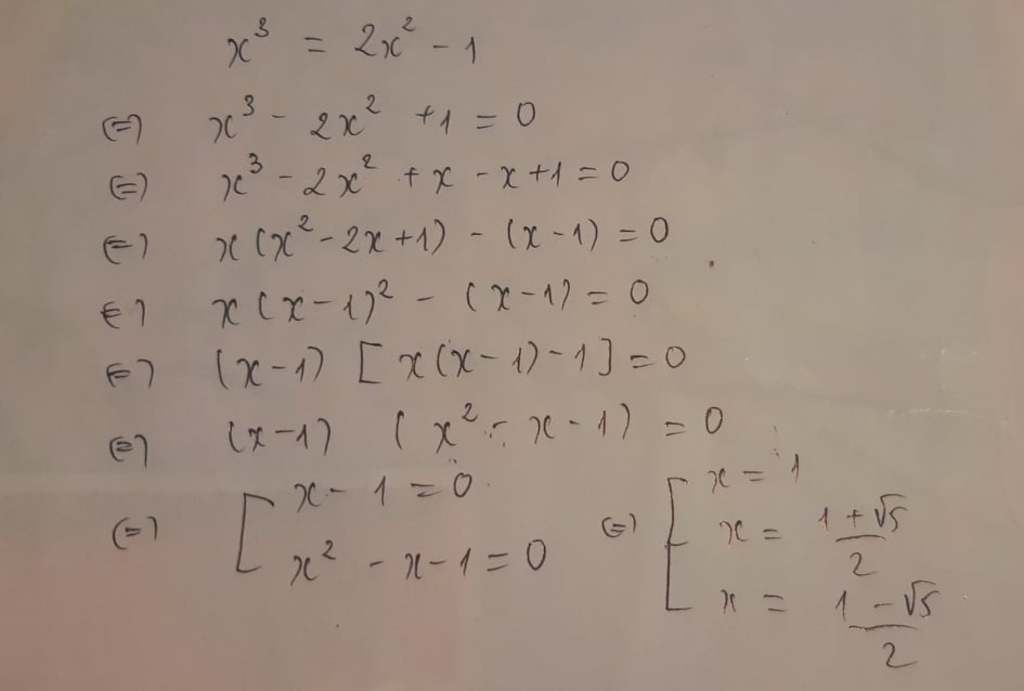 x³ = 2x² - 1
(=) x³ - 2x² + 1 = 0
(=) x³ - 2x² + x - x + 1 = 0
(=) x (x² - 2x + 1) - (x - 1) = 0
(=) x (x - 1)² - (x - 1) = 0
(=) (x - 1) [ x (x - 1) - 1 ] = 0
(=) (x - 1) ( x² - x - 1 ) = 0
(=) [ x - 1 = 0
x² - x - 1 = 0
(=) [ x = 1
x = (1 + √5)/2
x = (1 - √5)/2